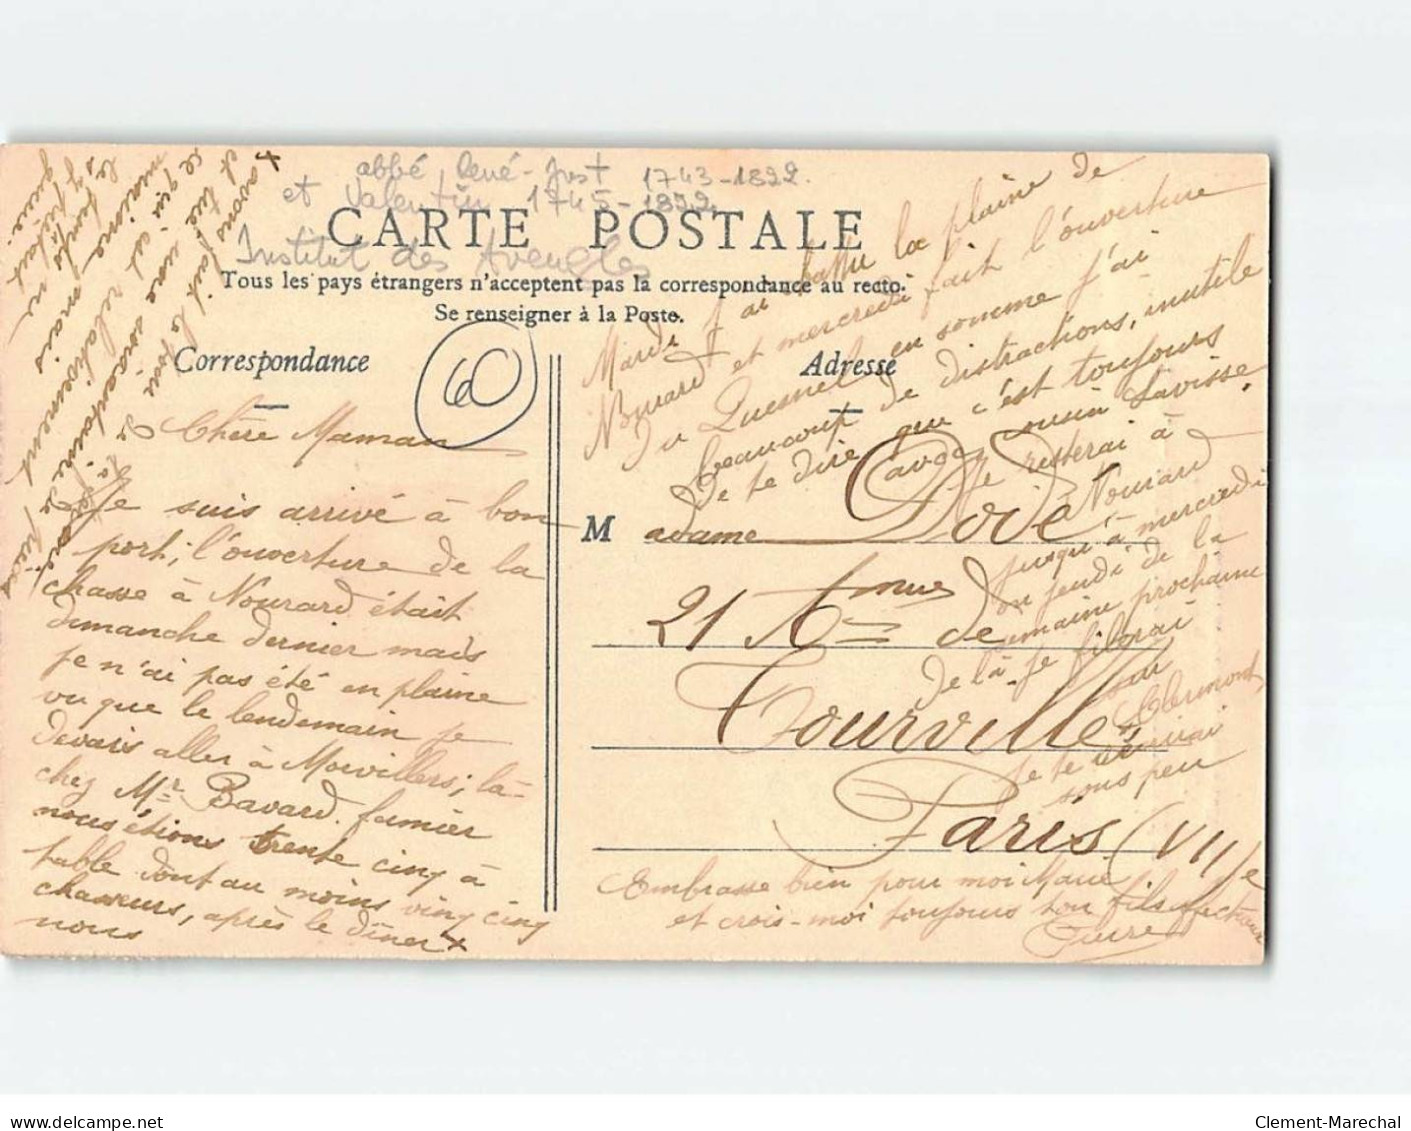 abbé René-Just 1743-1822.
et Valentin 1745-1822
CARTE POSTALE
Institut des Aveugles
Tous les pays étrangers n'acceptent pas la correspondance au recto.
Se renseigner à la Poste.
Correspondance
60
Chère Maman
Je suis arrivé à bon
port; l'ouverture de la
chasse à Nourard était
dimanche dernier mais
je n'ai pas été en plaine
vu que le lendemain je
devais aller à Morvillers; là-
chez Mr Bavard fermier
nous étions trente cinq à
table dont au moins vingt cinq
chasseurs, après le dîner x
nous
x avons fait le tour de la
et tué une soixantaine de
ce qui est relativement
maigre mais
le temps
s'y prêtait
guère.
Adresse
Mardi j'ai battu la plaine de
Nourard et mercredi fait l'ouverture
du Quesnel en somme j'ai
beaucoup de distractions, inutile
de te dire que c'est toujours
avec cousin Lavisse.
Je resterai à
Nourard
jusqu'à mercredi
ou jeudi de la
semaine prochaine
de là je filerai
sur
Clermont
je te
sous peu
Madame Dodé
21 de
Tourville
Paris (VII)e
Embrasse bien pour moi Marie
et crois-moi toujours ton fils affectueux
Pierre
Clement-Marechal
www.delcampe.net